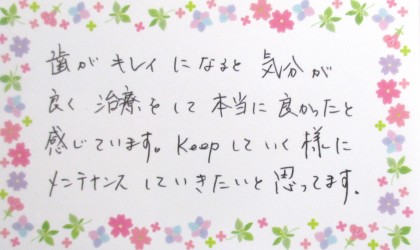 歯がキレイになると気分が
良く治療をして本当に良かったと
感じています。Keepしていく様に
メンテナンスしていきたいと思ってます。